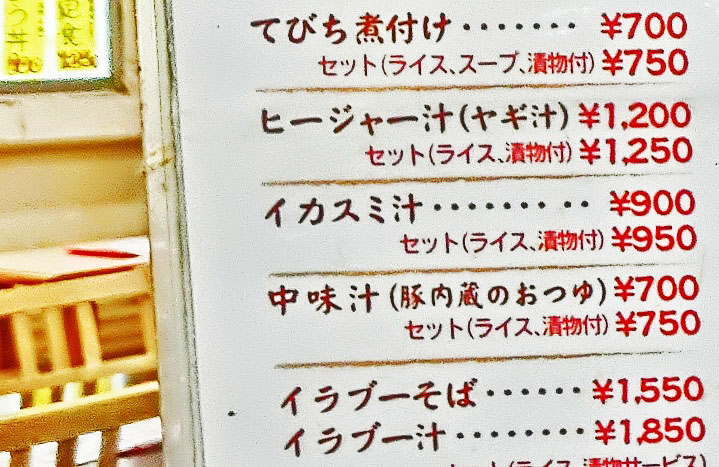 てびち煮付け・・・・・・・ ¥700
セット(ライス、スープ、漬物付) ¥750
ヒージャー汁(ヤギ汁) ¥1,200
セット(ライス、漬物付) ¥1,250
イカスミ汁・・・・・・・・・ ¥900
セット(ライス、漬物付) ¥950
中味汁(豚内蔵のおつゆ) ¥700
セット(ライス、漬物付) ¥750
イラブーそば・・・・・・ ¥1,550
イラブー汁・・・・・・・・ ¥1,850
セット(ライス、漬物サービス)
定食